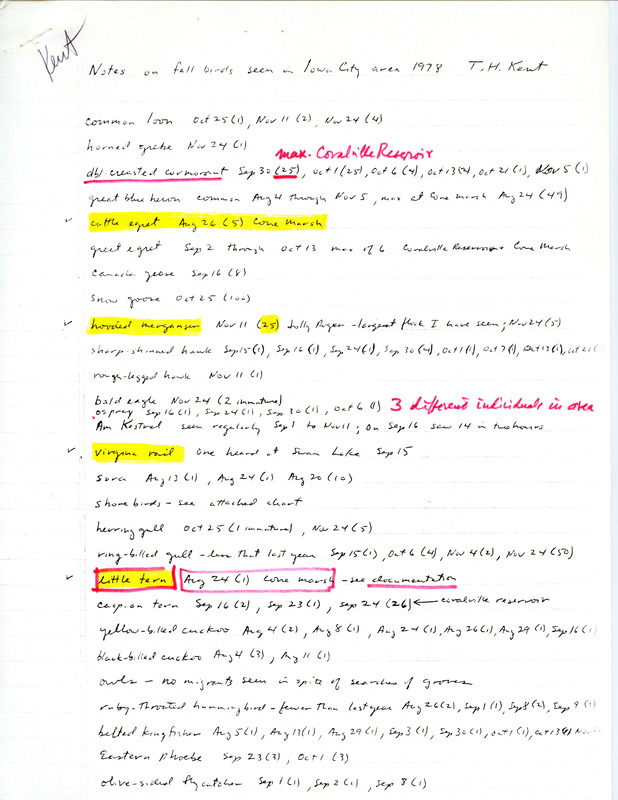 Kent
Notes on fall birds seen in Iowa City area 1978 T.H. Kent
common loon Oct 25 (1), Nov 11 (2), Nov 24 (4)
horned grebe Nov 24 (1)
max. Coralville Reservoir
dbl-creasted cormorant Sep 30 (25), Oct 1 (25), Oct 6 (4), Oct 13 (4), Oct 21 (1), Nov 5 (1)
great blue heron common Aug 4 through Nov 5, max at Cone Marsh Aug 24 (49)
✓ cattle egret Aug 26 (5) Cone Marsh
great egret Sep 2 through Oct 13 max of 6 Coralville Reservoir + Cone Marsh
Canada goose Sep 16 (8)
Snow goose Oct 25 (100)
✓ hooded merganser Nov 11 (25) Jolly Roger - largest flock I have seen; Nov 24 (5)
sharp-shinned hawk Sep 15 (1), Sep 16 (1), Sep 24 (1), Sep 30 (4), Oct 1 (1), Oct 7 (1), Oct 13 (1), Oct 21 (
rough-legged hawk Nov 11 (1)
bald eagle Nov 24 (2 immature)
osprey Sep 16 (1), Sep 24 (1), Sep 30 (1), Oct 6 (1) 3 different individuals in area
Am Kestrel seen regularly Sep 1 to Nov 11; on Sep 16 saw 14 in two hours
✓ virginia rail One heard at Swan Lake Sep 15
sora Aug 13 (1), Aug 24 (1) Aug 20 (10)
shore birds - see attached chart
herring gull Oct 25 (1 immature), Nov 24 (5)
ring-billed gull - less that last year Sep 15 (1), Oct 6 (4), Nov 4 (2), Nov 24 (50)
✓ Little tern Aug 24 (1) Cone Marsh - see documentation
caspian tern Sep 16 (2), Sep 23 (1), Sep 24 (26) ← coralville reservoir
yellow-billed cuckoo Aug 4 (2), Aug 8 (1), Aug 24 (1), Aug 26 (1), Aug 29 (1), Sep 16 (1)
black-billed cuckoo Aug 4 (3), Aug 11 (1)
owls - no migrants seen in spite of searches of groves
ruby-throated hummingbird - fewer than last year Aug 26 (2), Sep 1 (1), Sep 8 (2), Sep 9 (1)
belted kingfisher Aug 5 (1), Aug 13 (1), Aug 29 (1), Sep 3 (1), Sep 30 (1), Oct 1 (1), Oct 13 (1) Nov
Eastern Phoebe Sep 23 (3), Oct 1 (3)
olive-sided flycatcher Sep 1 (1), Sep 2 (1), Sep 8 (1)